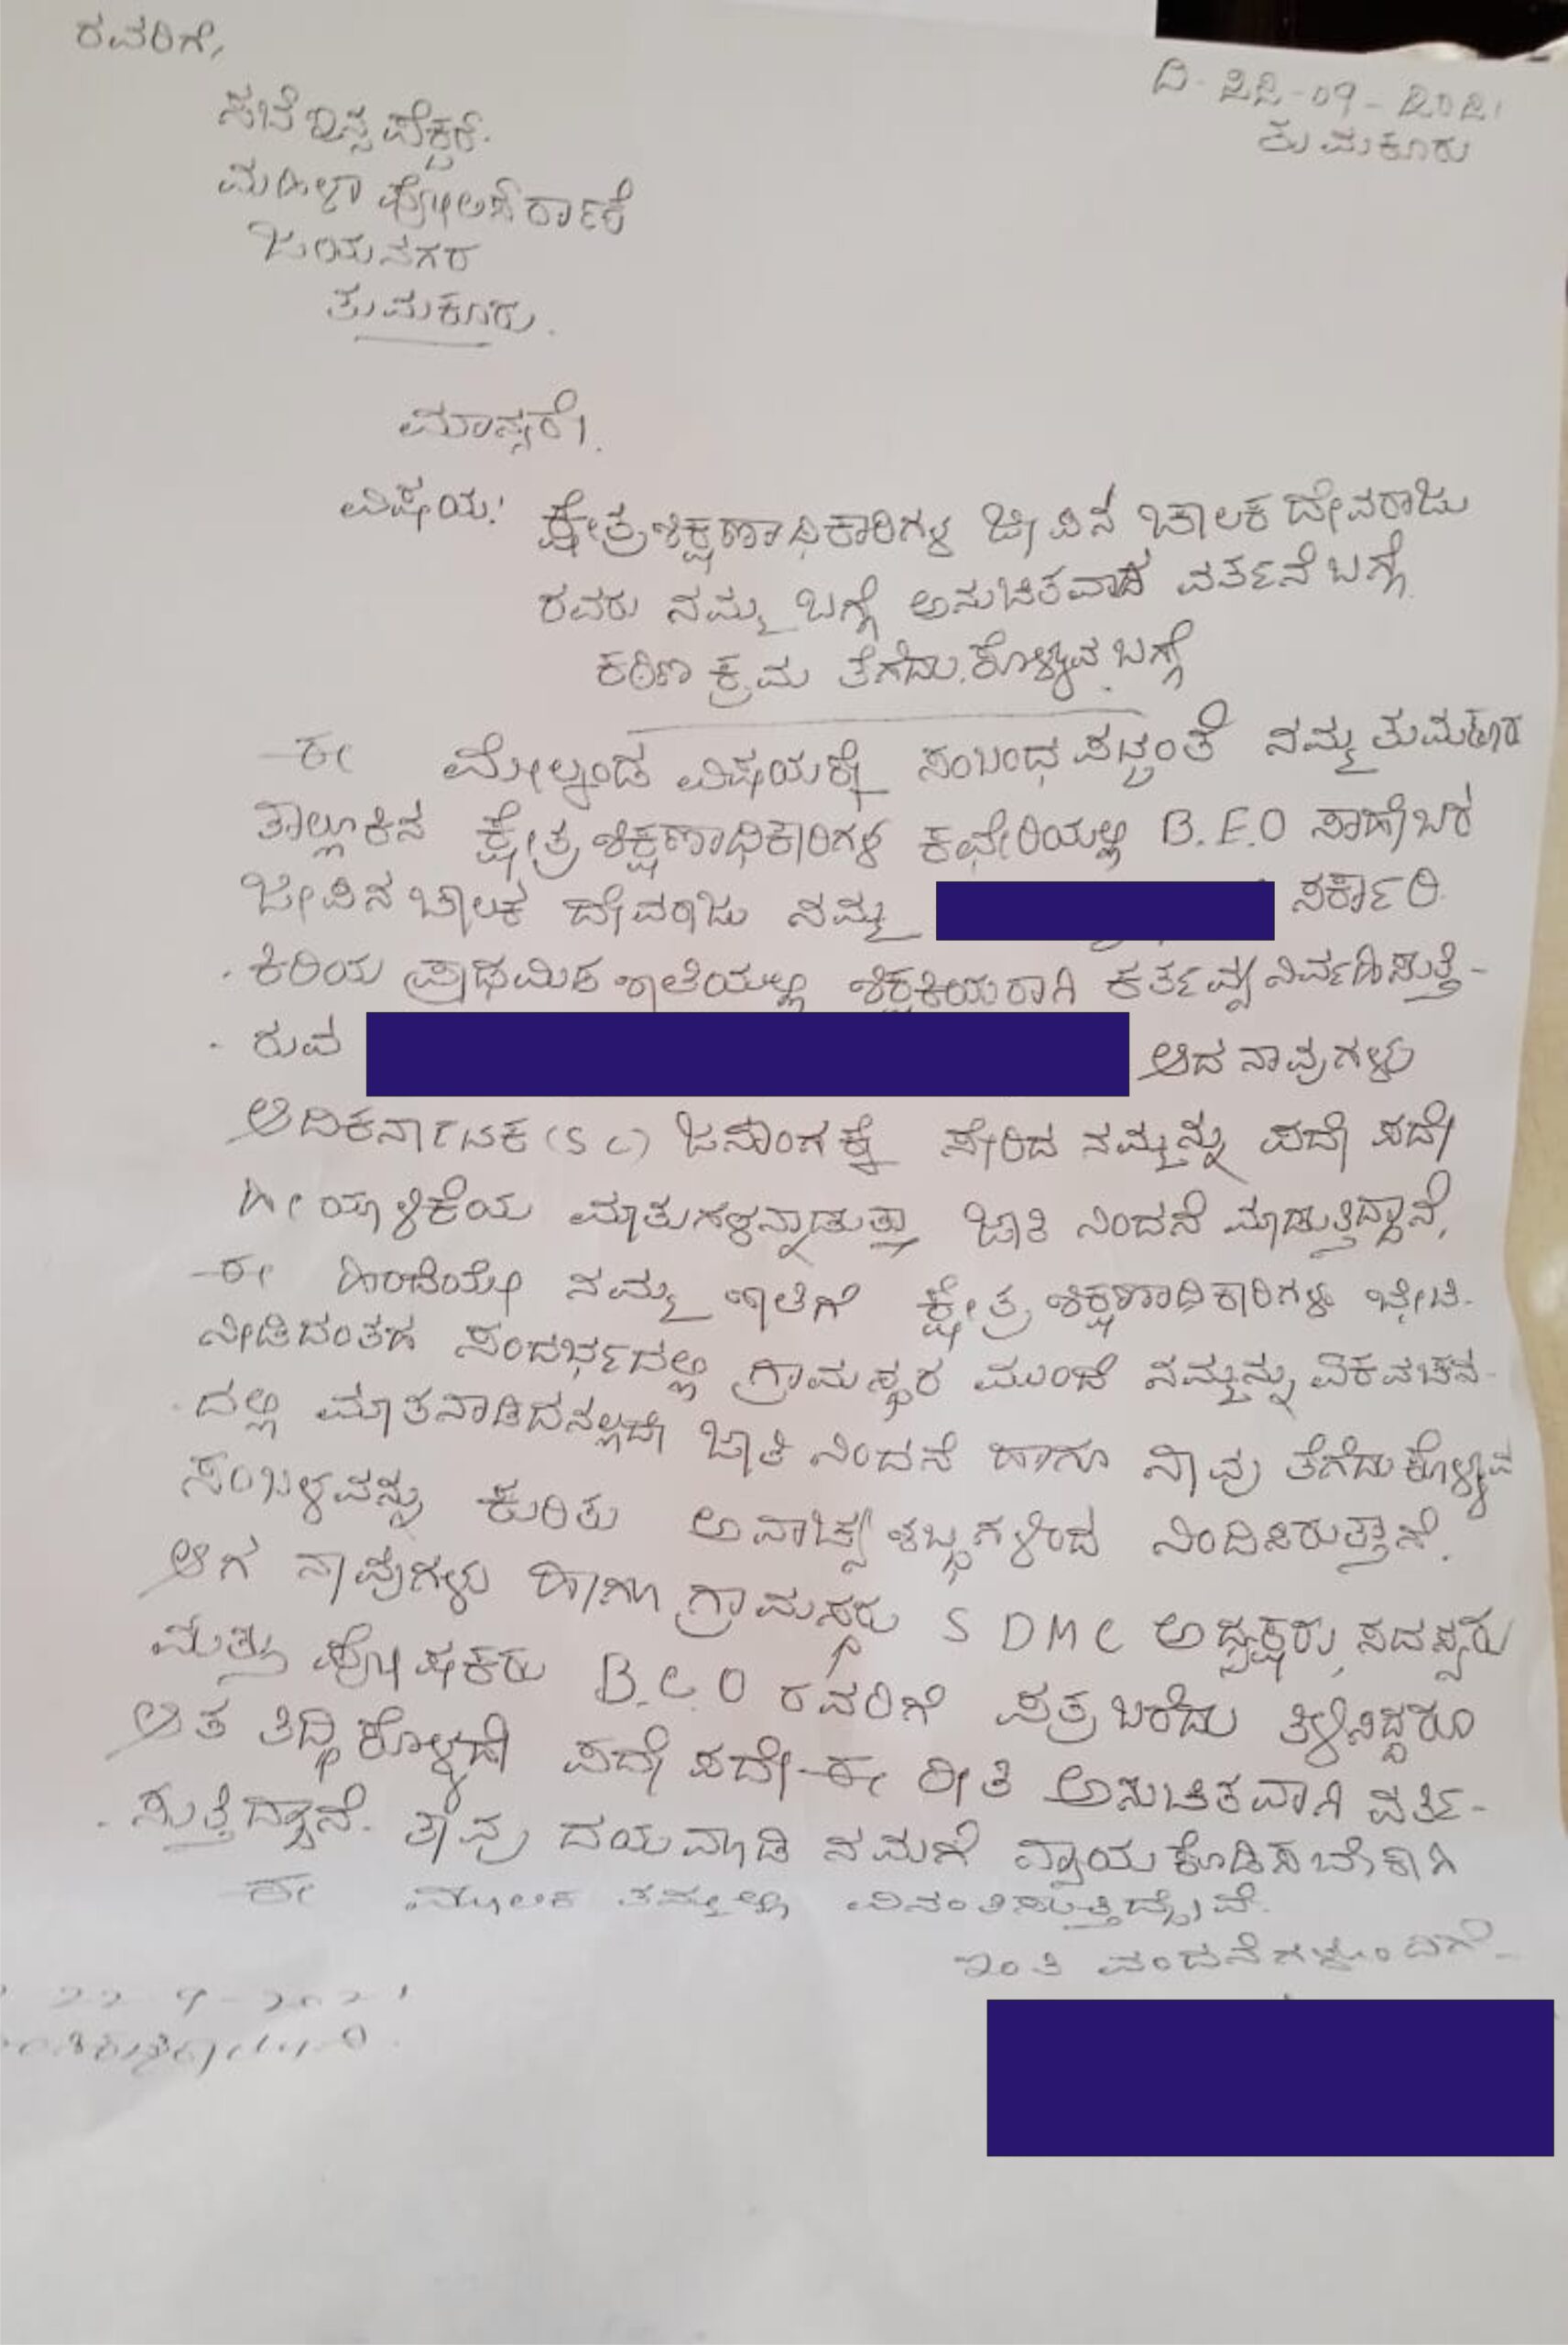 ರವರಿಗೆ,
ದಿ- 22-09-2021
ತುಮಕೂರು
ಸಬ್ ಇನ್ಸ್‌ಪೆಕ್ಟರ್.
ಮಹಿಳಾ ಪೋಲಿಸ್ ಠಾಣೆ
ಜಯನಗರ
ತುಮಕೂರು.
ಮಾನ್ಯರೇ.
ವಿಷಯ: ಕ್ಷೇತ್ರಶಿಕ್ಷಣಾಧಿಕಾರಿಗಳ ಜೀಪಿನ ಚಾಲಕ ದೇವರಾಜು
ರವರು ನಮ್ಮ ಬಗ್ಗೆ ಅನುಚಿತವಾದ ವರ್ತನೆ ಬಗ್ಗೆ
ಕಠಿಣ ಕ್ರಮ ತೆಗೆದುಕೊಳ್ಳುವ ಬಗ್ಗೆ
ಈ ಮೇಲ್ಕಂಡ ವಿಷಯಕ್ಕೆ ಸಂಬಂಧ ಪಟ್ಟಂತೆ ನಮ್ಮ ತುಮಕೂರ
ತಾಲ್ಲೂಕಿನ ಕ್ಷೇತ್ರ ಶಿಕ್ಷಣಾಧಿಕಾರಿಗಳ ಕಛೇರಿಯಲ್ಲಿ B.E.O ಸಾಹೇಬರ
ಜೀಪಿನ ಚಾಲಕ ದೇವರಾಜು ನಮ್ಮ ಸರ್ಕಾರಿ
ಕಿರಿಯ ಪ್ರಾಥಮಿಕ ಶಾಲೆಯಲ್ಲಿ ಶಿಕ್ಷಕಿಯರಾಗಿ ಕರ್ತವ್ಯ ನಿರ್ವಹಿಸುತ್ತಿ-
ರುವ ಆದ ನಾವುಗಳು
ಆದಿಕರ್ನಾಟಕ (SC) ಜನಾಂಗಕ್ಕೆ ಸೇರಿದ ನಮ್ಮನ್ನು ಪದೇ ಪದೇ
ಹೀಯಾಳಿಕೆಯ ಮಾತುಗಳನ್ನಾಡುತ್ತಾ ಜಾತಿ ನಿಂದನೆ ಮಾಡುತ್ತಿದ್ದಾನೆ,
ಈ ಹಿಂದೆಯೇ ನಮ್ಮ ಶಾಲೆಗೆ ಕ್ಷೇತ್ರ ಶಿಕ್ಷಣಾಧಿಕಾರಿಗಳು ಭೇಟಿ
ನೀಡಿದಂತಹ ಸಂದರ್ಭದಲ್ಲಿ ಗ್ರಾಮಸ್ಥರ ಮುಂದೆ ನಮ್ಮನ್ನು ಏಕವಚನ-
ದಲ್ಲಿ ಮಾತನಾಡಿದನಲ್ಲದೇ ಜಾತಿ ನಿಂದನೆ ಹಾಗೂ ನಾವು ತೆಗೆದುಕೊಳ್ಳುವ
ಸಂಬಳವನ್ನು ಕುರಿತು ಅವಾಚ್ಯ ಶಬ್ಧಗಳಿಂದ ನಿಂದಿಸಿರುತ್ತಾನೆ.
ಆಗ ನಾವುಗಳು ಹಾಗೂ ಗ್ರಾಮಸ್ಥರು SDMC ಅಧ್ಯಕ್ಷರು, ಸದಸ್ಯರು
ಮತ್ತು ಪೋಷಕರು B.E.O ರವರಿಗೆ ಪತ್ರ ಬರೆದು ತಿಳಿಸಿದ್ದರೂ
ಆತ ತಿದ್ದಿಕೊಳ್ಳದೇ ಪದೇ ಪದೇ ಈ ರೀತಿ ಅನುಚಿತವಾಗಿ ವರ್ತಿ-
ಸುತ್ತಿದ್ದಾನೆ. ತಾವು ದಯಮಾಡಿ ನಮಗೆ ನ್ಯಾಯ ಕೊಡಿಸಬೇಕಾಗಿ
ಈ ಮೂಲಕ ತಮ್ಮಲ್ಲಿ ವಿನಂತಿಸುತ್ತಿದ್ದೇವೆ.
ಇಂತಿ ವಂದನೆಗಳೊಂದಿಗೆ
22-9-2021